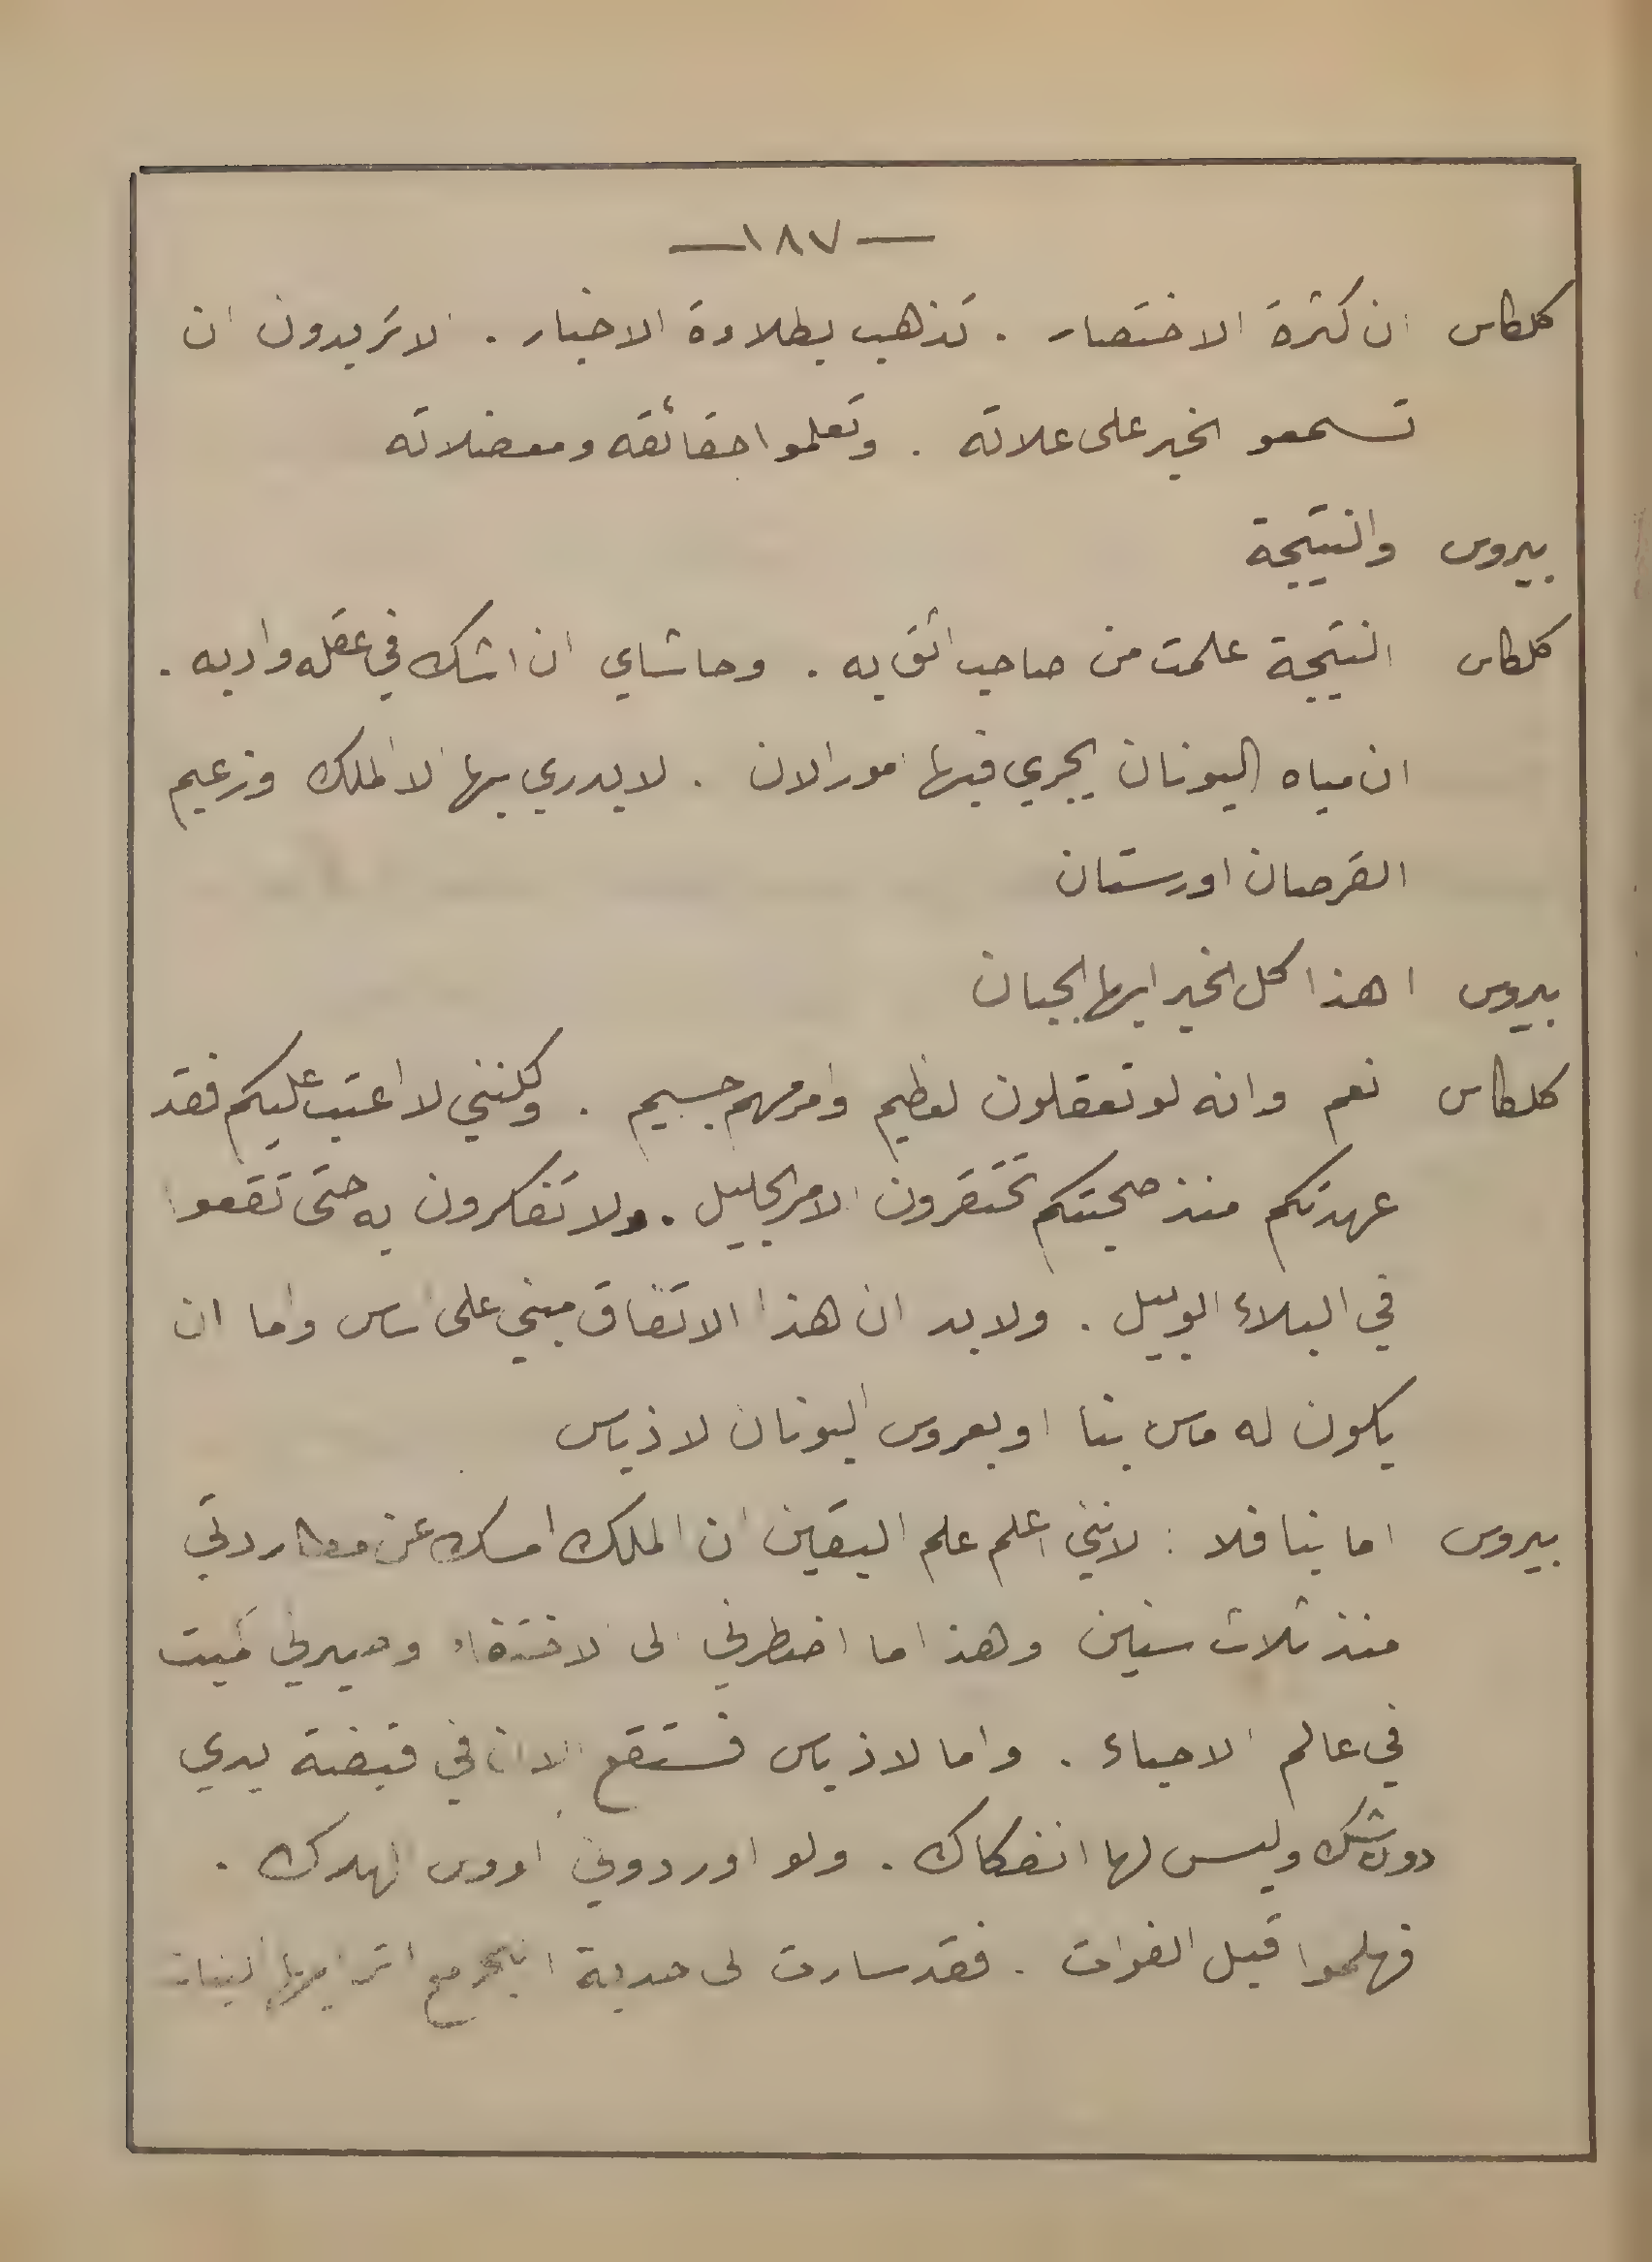 —١٨٧—
كلكاس ان كثرة الاختصار . تذهب بطلاوة الاخبار . الا تريدون ان
تسمعو الخبر على علاته . وتعلموا حقائقه ومعضلاته
بيروس والنتيجة
كلكاس النتيجة علمت من صاحب اثق به . وحاشاي ان اشك في عقله وادبه .
ان مياه اليونان يجري فيها امور الان . لا يدري بها الا الملك وزعيم
القرصان اورستان
بيروس اهذا كل الخبر ايها الجبان
كلكاس نعم وانه لو تعقلون لعظيم وامر مهم جسيم . ولكنني لا اعتب عليكم فقد
عهدتكم منذ صحبتكم تحتقرون الامر الجليل . ولا تفكرون به حتى تقعوا
في البلاء الوبيل . ولا بد ان هذا الاتفاق مبني على اساس واما ان
يكون له ماس بنا او بعروس اليونان لاذياس
بيروس اما بنا فلا : لانني اعلم علم اليقين ان الملك امسك عن مطاردتي
منذ ثلاث سنين وهذا ما اضطرني الى الاختفاء وصيرني كميت
في عالم الاحياء . واما لاذياس فستقع الان في قبضة يدي
دون شك وليس لها انفكاك . ولو اوردوني اووس الهلاك .
فهلموا قبل الفوات . فقد سارت الى حدبة البحر مع اترابها البنات